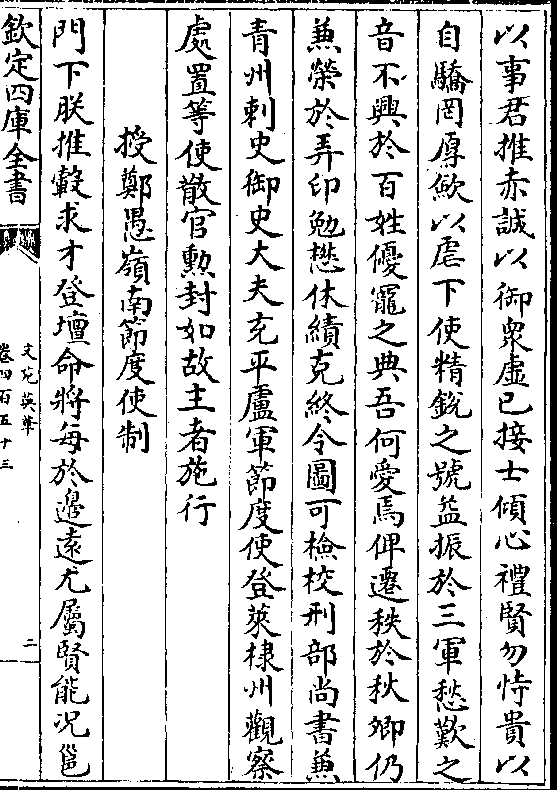 以事君推赤誠以御衆虚已接士傾心禮賢勿恃貴以
自驕罔厚歛以虐下使精鋭之號益振於三軍愁歎之
音不興於百姓優寵之典吾何愛焉俾遷秩於秋卿仍
兼榮於弄印勉懋休績克終令圖可檢校刑部尚書兼
青州刺史御史大夫充平盧軍節度使登萊棣州觀察
處置等使散官勲封如故主者施行
授鄭愚嶺南節度使制
門下朕推轂求才登壇命將每於邊遠尤屬賢能况邕
欽定四庫全書
文苑英華
卷四百五十三
二